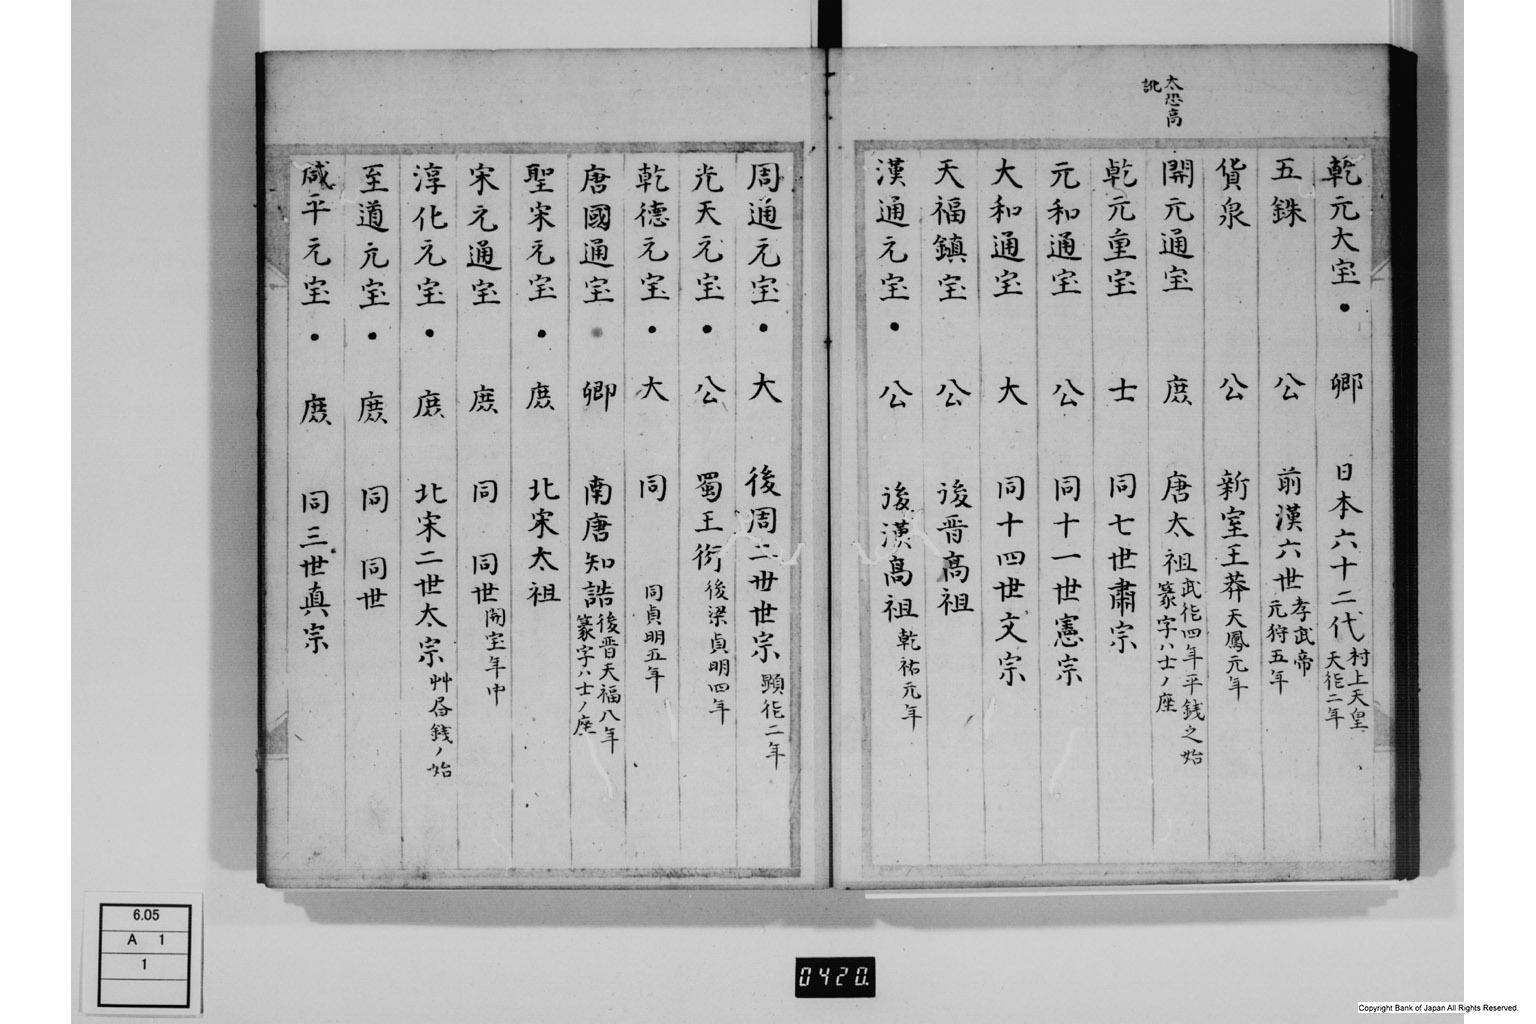 太恐高
訛
乾元大宝・ 卿 日本六十二代 村上天皇 天徳二年
五銖 公 前漢六世 孝武帝 元狩五年
貨泉 公 新室王莽 天鳳元年
開元通宝 庶 唐太祖 武徳四年平銭之始 篆字ハ士ノ座
乾元重宝 士 同七世肅宗
元和通宝 公 同十一世憲宗
大和通宝 大 同十四世文宗
天福鎮宝 公 後晋高祖
漢通元宝・ 公 後漢高祖 乾祐元年
周通元宝・ 大 後周二世世宗 顕徳二年
光天元宝・ 公 蜀王衍 後梁貞明四年
乾德元宝・ 大 同 同貞明五年
唐國通宝・ 卿 南唐知誥 後晋天福八年 篆字ハ士ノ座
聖宋元宝・ 庶 北宋太祖
宋元通宝 庶 同 同世 開宝年中
淳化元宝・ 庶 北宋二世太宗 艸唇銭ノ始
至道元宝・ 庶 同 同世
咸平元宝・ 庶 同三世真宗
6.05
A 1
1
0420.
Copyright Bank of Japan All Rights Reserved.